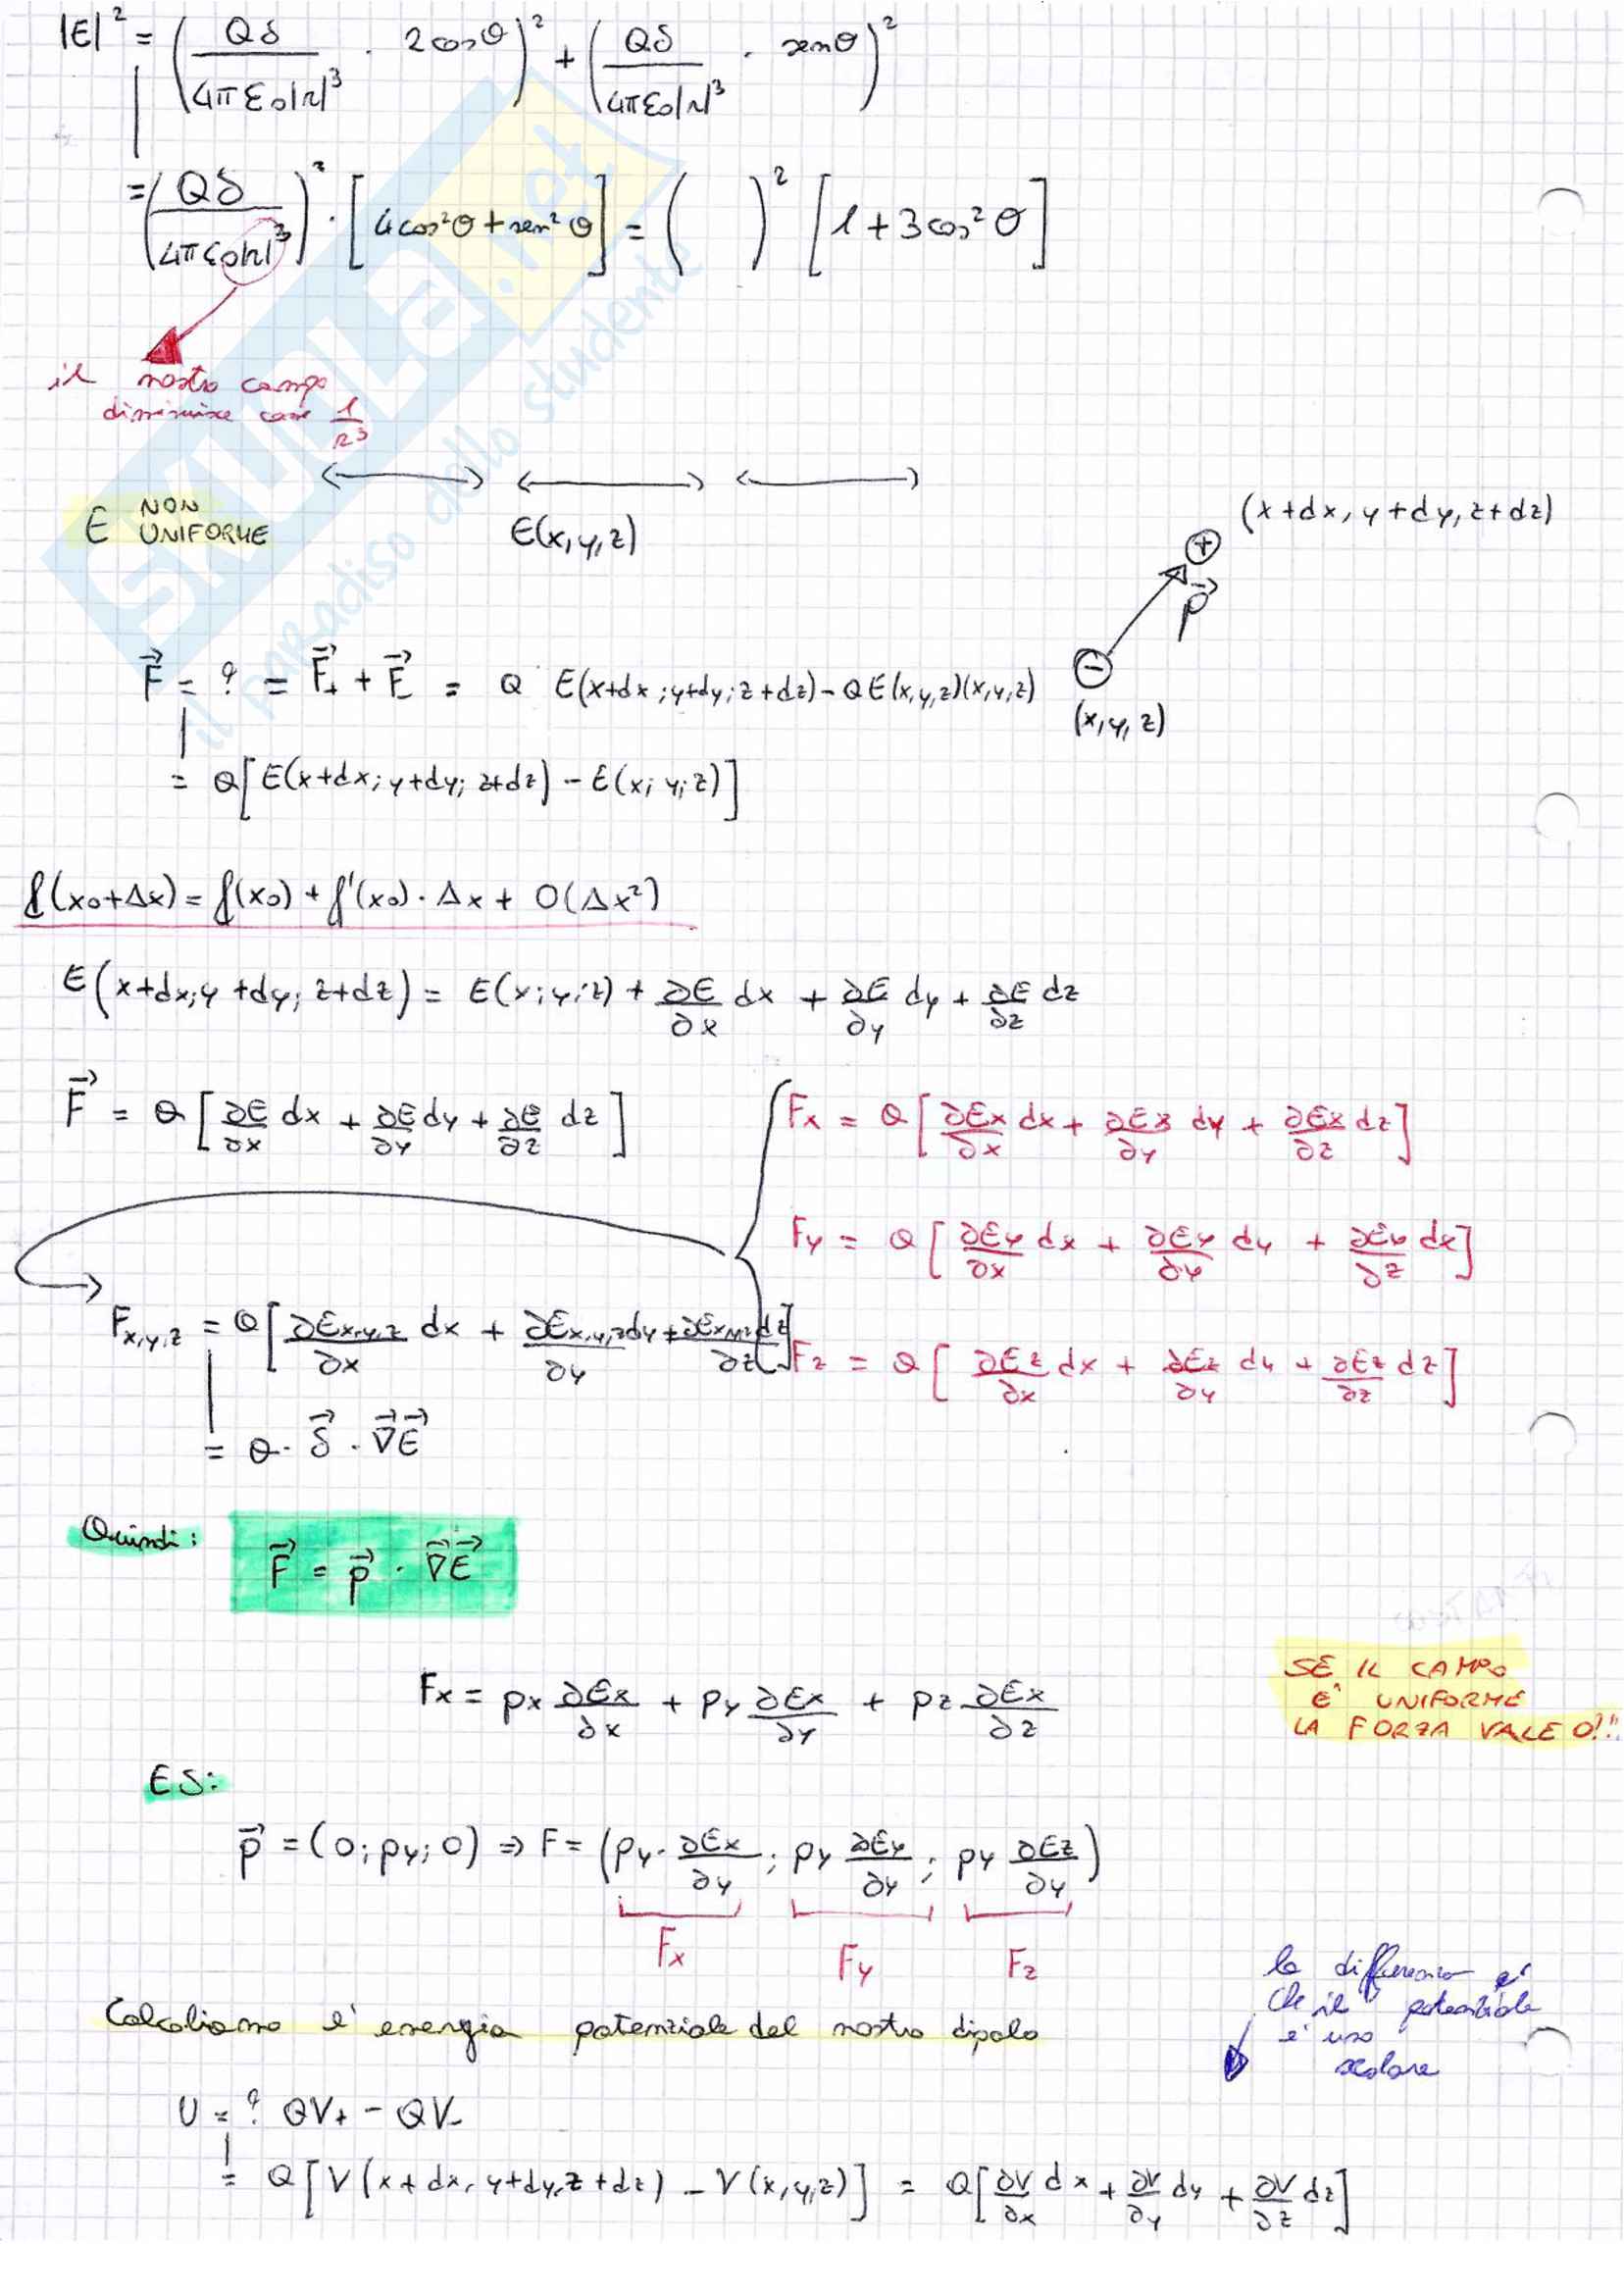 |E|² = (Qδ / 4πε₀|r|³ · 2cosθ)² + (Qδ / 4πε₀|r|³ · senθ)²
= (Qδ / 4πε₀|r|³)² · [4cos²θ + sen²θ] = (   )² [1+3cos²θ]
il nostro campo
diminuisce come 1/r³
E NON UNIFORME
E(x,y,z)
(x+dx, y+dy, z+dz)
+
p⃗
−
(x,y,z)
F⃗ = ? = F⃗₊ + F⃗₋ = Q E(x+dx;y+dy;z+dz) − QE(x,y,z)(x,y,z)
= Q[E(x+dx; y+dy; z+dz) − E(x; y; z)]
f(x₀+Δx) = f(x₀) + f'(x₀)·Δx + O(Δx²)
E(x+dx;y+dy; z+dz) = E(x;y;z) + ∂E/∂x dx + ∂E/∂y dy + ∂E/∂z dz
F⃗ = Q[∂E/∂x dx + ∂E/∂y dy + ∂E/∂z dz]
Fx = Q[∂Ex/∂x dx + ∂Ex/∂y dy + ∂Ex/∂z dz]
Fy = Q[∂Ey/∂x dx + ∂Ey/∂y dy + ∂Ey/∂z dz]
Fz = Q[∂Ez/∂x dx + ∂Ez/∂y dy + ∂Ez/∂z dz]
Fx,y,z = Q[∂Ex,y,z/∂x dx + ∂Ex,y,z/∂y dy + ∂Ex,y,z/∂z dz]
= Q · δ⃗ · ∇⃗E⃗
Quindi: F⃗ = p⃗ · ∇⃗E⃗
Fx = px ∂Ex/∂x + py ∂Ex/∂y + pz ∂Ex/∂z
SE IL CAMPO
E' UNIFORME
LA FORZA VALE 0!!!
ES:
p⃗ = (0; py; 0) ⇒ F = (py · ∂Ex/∂y ; py ∂Ey/∂y ; py ∂Ez/∂y)
Fx Fy Fz
la differenza e'
che il potenziale
e' uno
scalare
Calcoliamo l'energia potenziale del nostro dipolo
U = ? QV₊ − QV₋
= Q[V(x+dx, y+dy,z+dz) − V(x,y,z)] = Q[∂V/∂x dx + ∂V/∂y dy + ∂V/∂z dz]
SKUOLA.net
il paradiso dello studente